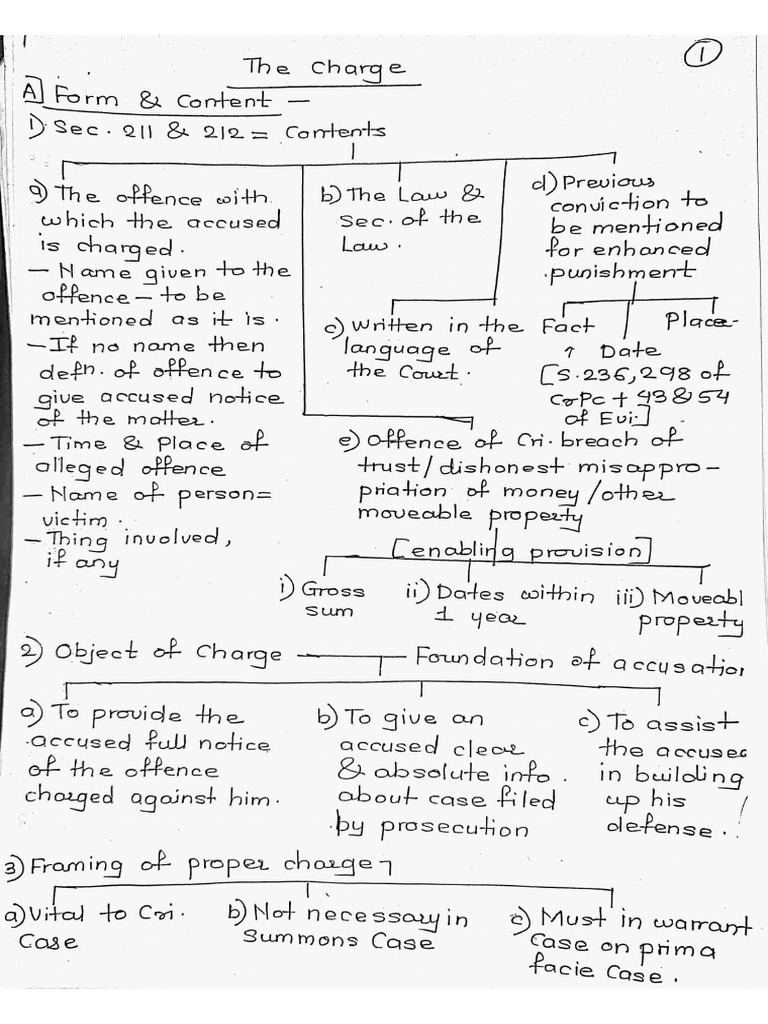 1
The Charge
A] Form & Content —
1) Sec. 211 & 212 = Contents
a) The offence with
which the accused
is charged.
— Name given to the
offence — to be
mentioned as it is.
— If no name then
defn. of offence to
give accused notice
of the matter.
— Time & Place of
alleged offence
— Name of person=
victim.
— Thing involved,
if any
b) The Law &
Sec. of the
Law.
c) Written in the
language of
the Court.
d) Previous
conviction to
be mentioned
for enhanced
punishment
Fact
Date
Place
[S. 236, 298 of
CrPC + 43 & 54
of Evi.]
e) Offence of Cri. breach of
trust/dishonest misappro-
priation of money/other
moveable property
[enabling provision]
i) Gross
sum
ii) Dates within
1 year
iii) Moveabl
property
2) Object of Charge — Foundation of accusation
a) To provide the
accused full notice
of the offence
charged against him.
b) To give an
accused clear
& absolute info.
about case filed
by prosecution
c) To assist
the accused
in building
up his
defense.
3) Framing of proper charge
a) Vital to Cri.
Case
b) Not necessary in
Summons Case
c) Must in warrant
Case on prima
facie Case.